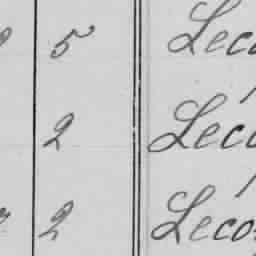 5 Leco
2 Léco
2 Léco